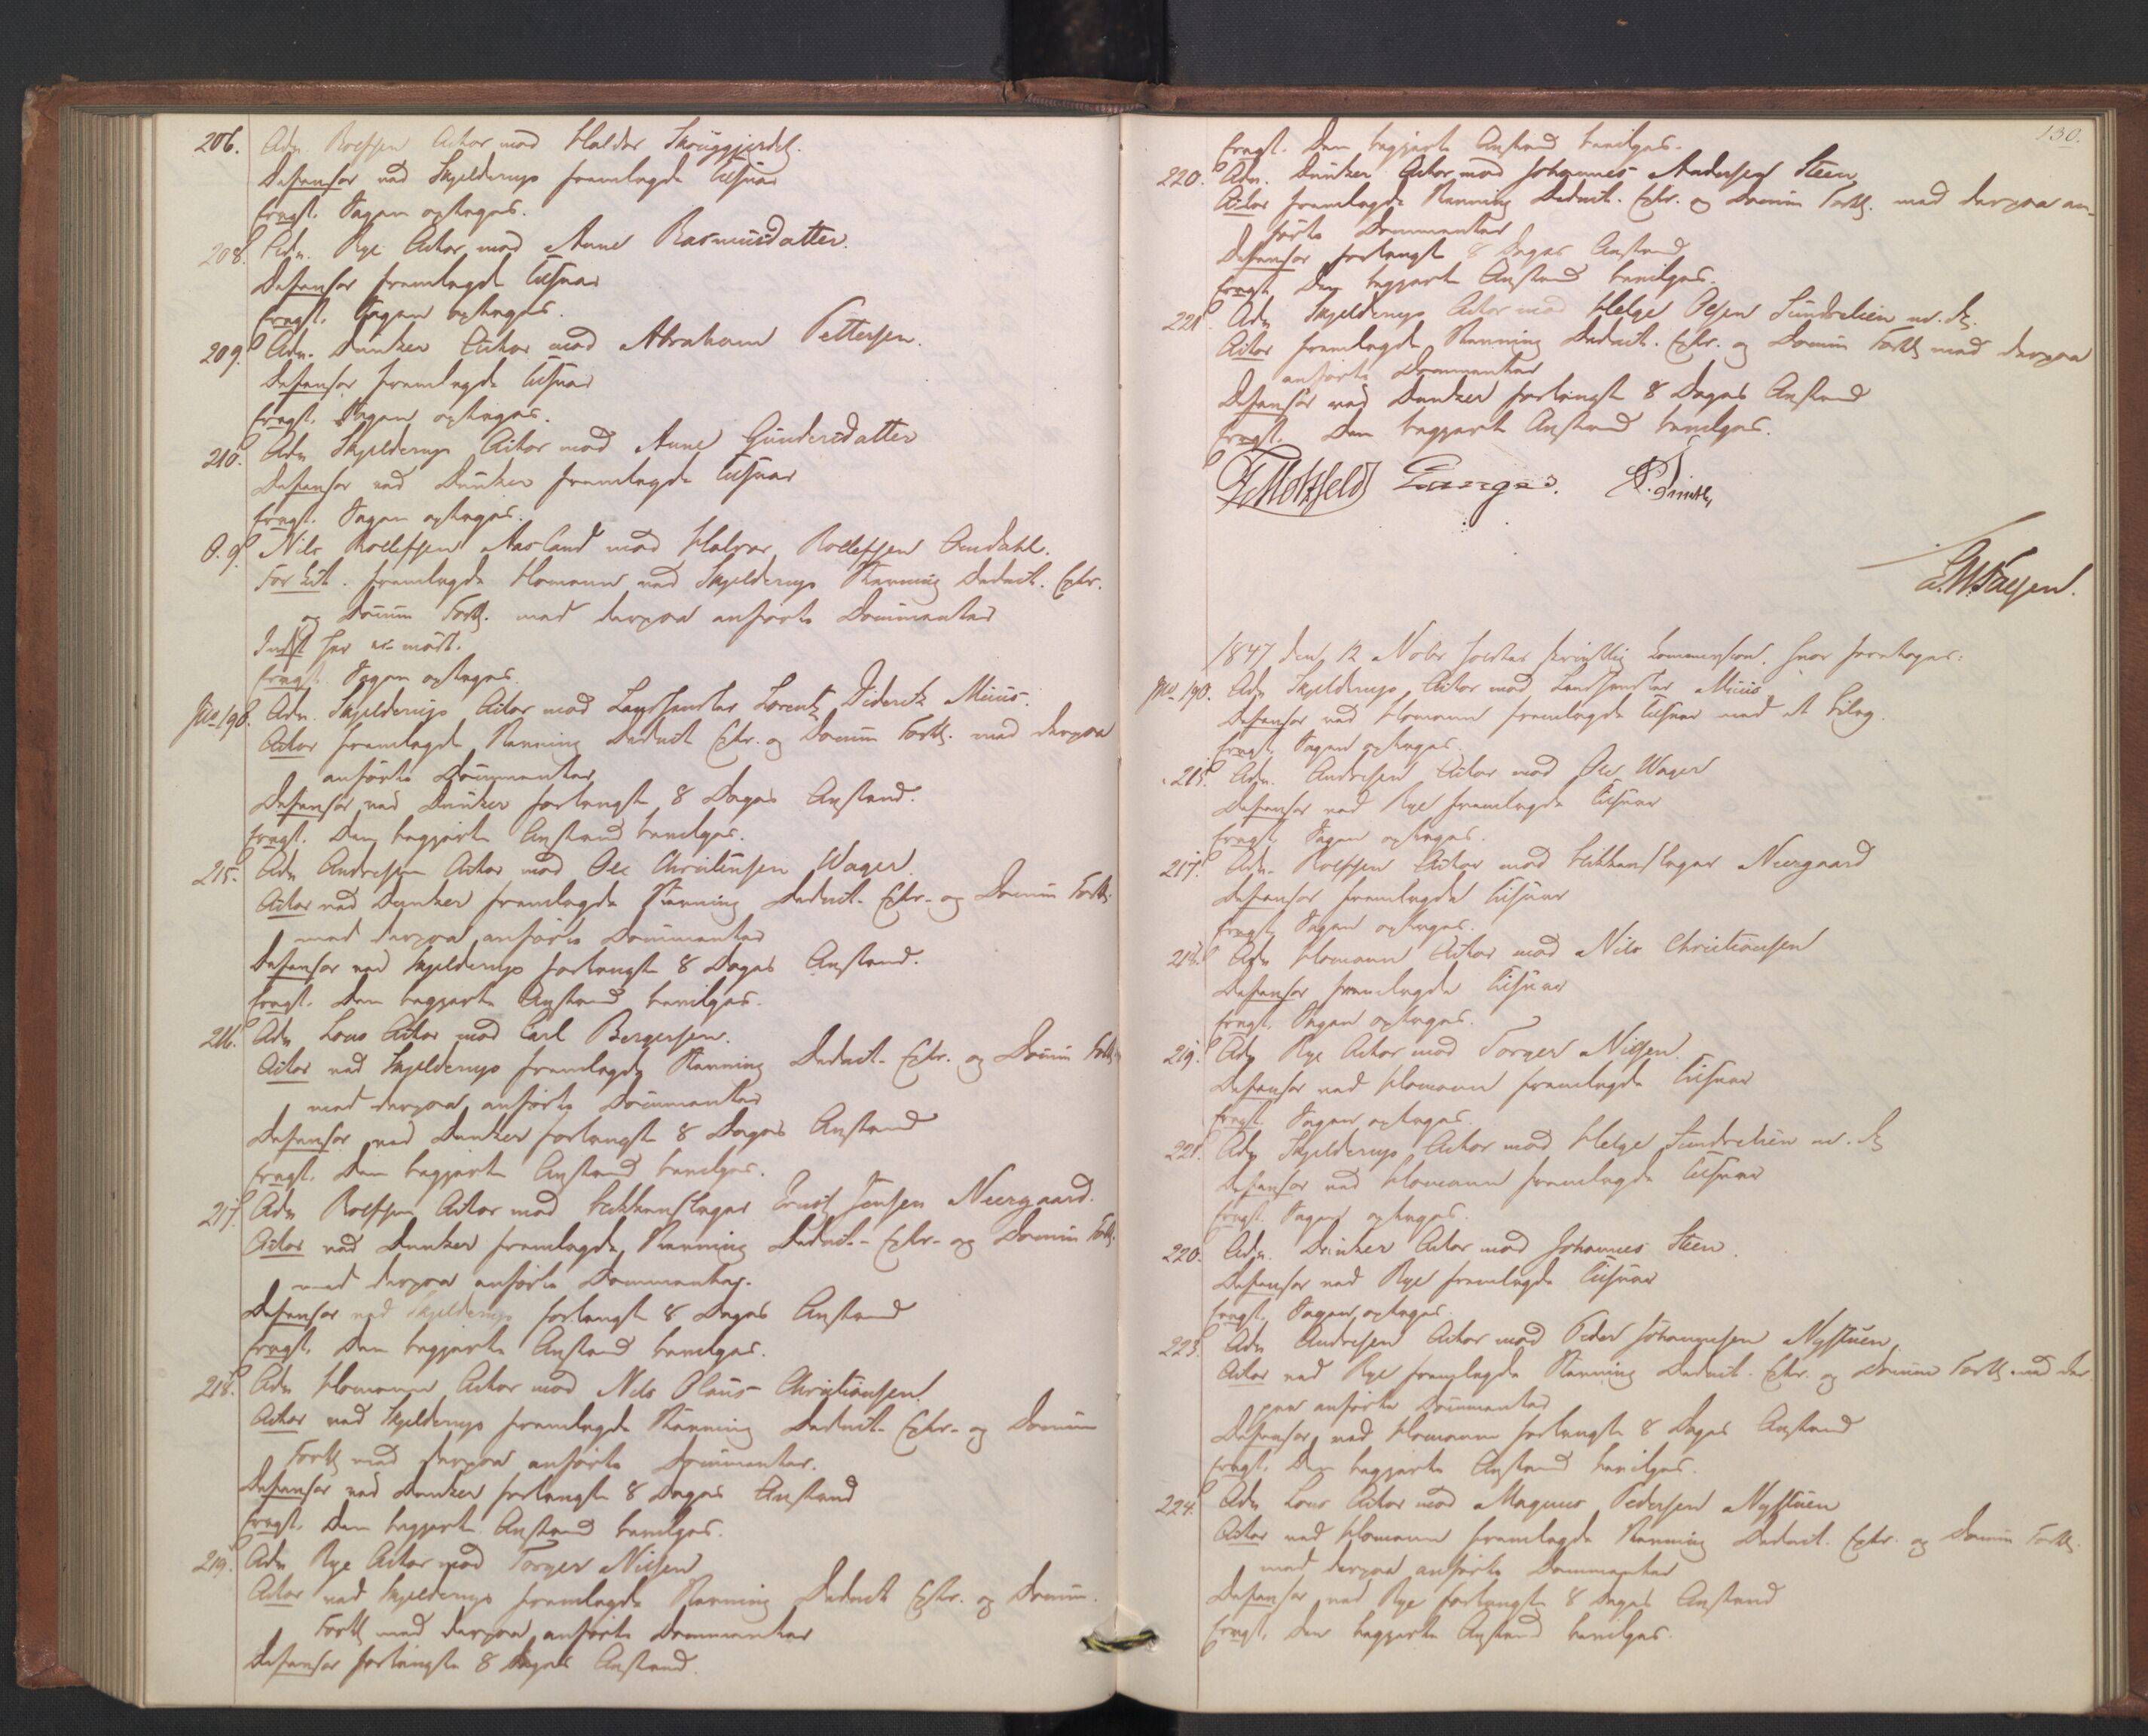 206. Adv. Rolfsen Actor mod Haldor Skouggjerdet.
Defensor ved Skjelderup fremlagde Tilsvar
Eragt. Sagen optages.
208. Adv. Rye Actor mod Anne Rasmusdatter.
Defensor fremlagde Tilsvar
Eragt. Sagen optages.
209. Adv. Dunker Actor mod Abraham Pettersen.
Defensor fremlagde Tilsvar
Eragt. Sagen optages.
210. Adv Skjelderup Actor mod Anne Gundersdatter
Defensor ved Dunker fremlagde Tilsvar
Eragt. Sagen optages.
O. 9. Nils Rollefsen Aasland mod Halvor Rollefsen Omdahl.
For Cit. fremlagde Homann ved Skjelderup Stevning Deduct. Extr.
og Domum Fortg. med derpaa anførte Documenter
Indst her ei mødt.
Eragt. Sagen optages.
190. Adv. Skjelderup Actor mod Landhandler Lorentz Diderik Muus.
Actor fremlagde Stevning Deduct Extr. og Domum Fortg. med derpaa
anførte Documenter
Defensor ved Dunker forlangte 8 Dages Anstand.
Eragt. Den begjærte Anstand bevilges.
215. Adv Andresen Actor mod Ole Christensen Wager.
Actor ved Dunker fremlagde Stevning Deduct. Extr. og Domum Fortg.
med derpaa anførte Documenter
Defensor ved Skjelderup forlangte 8 Dages Anstand.
Eragt. Den begjærte Anstand bevilges.
216. Adv Lous Actor mod Carl Bergersen.
Actor ved Skjelderup fremlagde Stevning Deduct. Extr. og Domum Fortg.
med derpaa anførte Documenter
Defensor ved Dunker forlangte 8 Dages Anstand
Eragt. Den begjærte Anstand bevilges.
217. Adv Rolfsen Actor mod Blikkenslager Ernst Jensen Neergaard.
Actor ved Dunker fremlagde Stevning Deduct. Extr. og Domum Fortg.
med derpaa anførte Documenter.
Defensor ved Skjelderup forlangte 8 Dages Anstand
Eragt. Den begjærte Anstand bevilges.
218. Adv Homann Actor mod Nils Olaus Christiansen.
Actor ved Skjelderup fremlagde Stevning Deduct. Extr. og Domum
Fortg med derpaa anførte Documenter.
Defensor ved Dunker forlangte 8 Dages Anstand
Eragt. Den begjærte Anstand bevilges.
219. Adv Rye Actor mod Torger Nilsen
Actor ved Skjelderup fremlagde Stevning Deduct Extr. og Domum.
Fortg med derpaa anførte Documenter
Defensor forlangte 8 Dages Anstand.
130.
Eragt. Den begjærte Anstand bevilges.
220. Adv. Dunker Actor mod Johannes Andersen Steen
Actor fremlagde Stevning Deduct. Extr. og Domum Fortg. med derpaa an-
førte Documenter
Defensor forlangte 8 Dages Anstand
Eragt. Den begjærte Anstand bevilges.
221. Adv Skjelderup Actor mod Helge Olsen Sundrelien m. fl.
Actor fremlagde Stevning Deduct. Extr. og Domum Fortg med derpaa
anførte Documenter
Defensor ved Dunker forlangte 8 Dages Anstand
Eragt. Den begjærte Anstand bevilges.
Motzfeldt Lange.
1847 den 12 Novbr holdtes skriftlig Commission, hvor foretoges:
190. Adv Skjelderup Actor mod Landhandler Muus
Defensor ved Homann fremlagde Tilsvar med et Bilag.
Eragt. Sagen optages.
215. Adv. Andresen Actor mod Ole Wager
Defensor ved Rye fremlagde Tilsvar
Eragt. Sagen optages.
217. Adv. Rolfsen Actor mod Blikkenslager Neergaard
Defensor fremlagde Tilsvar
Eragt. Sagen optages.
218. Adv Homann Actor mod Nils Christiansen
Defensor fremlagde Tilsvar
Eragt. Sagen optages.
219. Adv Rye Actor mod Torger Nilsen.
Defensor ved Homann fremlagde Tilsvar
Eragt. Sagen optages.
221. Adv Skjelderup Actor mod Helge Sundrelien m. fl
Defensor ved Homann fremlagde Tilsvar
Eragt. Sagen optages.
220. Adv. Dunker Actor mod Johannes Steen.
Defensor ved Rye fremlagde Tilsvar
Eragt. Sagen optages.
223. Adv Andresen Actor mod Peder Johannesen Nystuen
Actor ved Rye fremlagde Stevning Deduct. Extr. og Domum Fortg med der-
paa anførte Documenter
Defensor ved Homann forlangte 8 Dages Anstand
Eragt. Den begjærte Anstand bevilges.
224. Adv Lous Actor mod Magnus Pedersen Nystuen
Actor ved Homann fremlagde Stevning Deduct. Extr. og Domum Fortg.
med derpaa anførte Documenter
Defensor ved Rye forlangte 8 Dages Anstand
Eragt. Den begjærte Anstand bevilges.